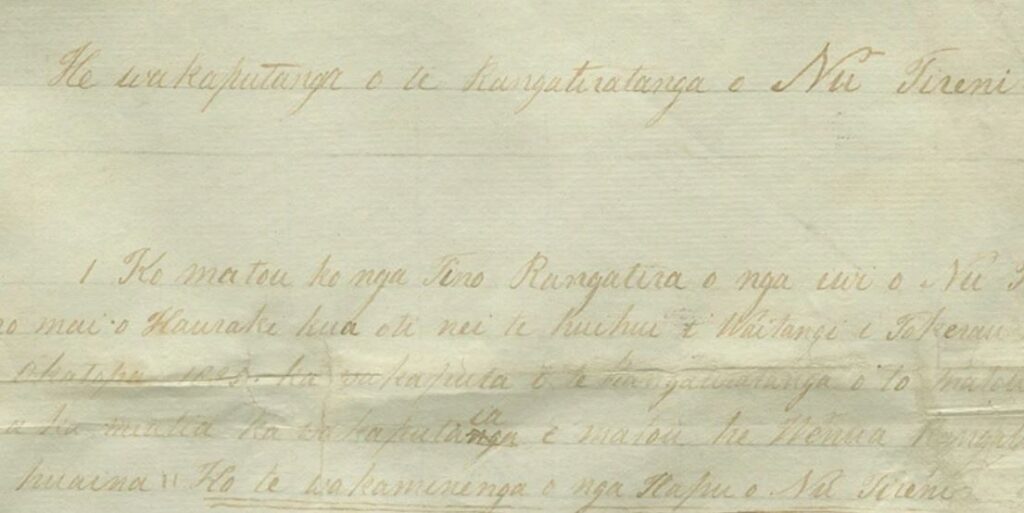 He wakaputanga o te Rangatiratanga o Nu Tireni
1 Ko matou ko nga Tino Rangatira o nga iwi o Nu
mai o Hauraki kua oti nei te huihui i Waitangi i Tokerau
ka wakaputa i te Rangatiratanga o to matou
ka meatia ka wakaputaia e matou he Wenua
huaina "Ko te wakaminenga o nga Hapu o Nu Tireni